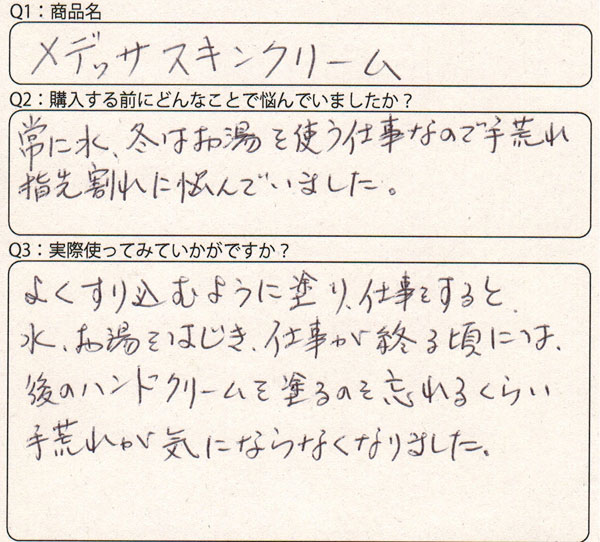 Q1：商品名
メデッサスキンクリーム
Q2：購入する前にどんなことで悩んでいましたか？
常に水、冬はお湯を使う仕事なので手荒れ
指先割れに悩んでいました。
Q3：実際使ってみていかがですか？
よくすり込むように塗り、仕事をすると、
水、お湯をはじき、仕事が終る頃には、
後のハンドクリームを塗るのを忘れるくらい
手荒れが気にならなくなりました。